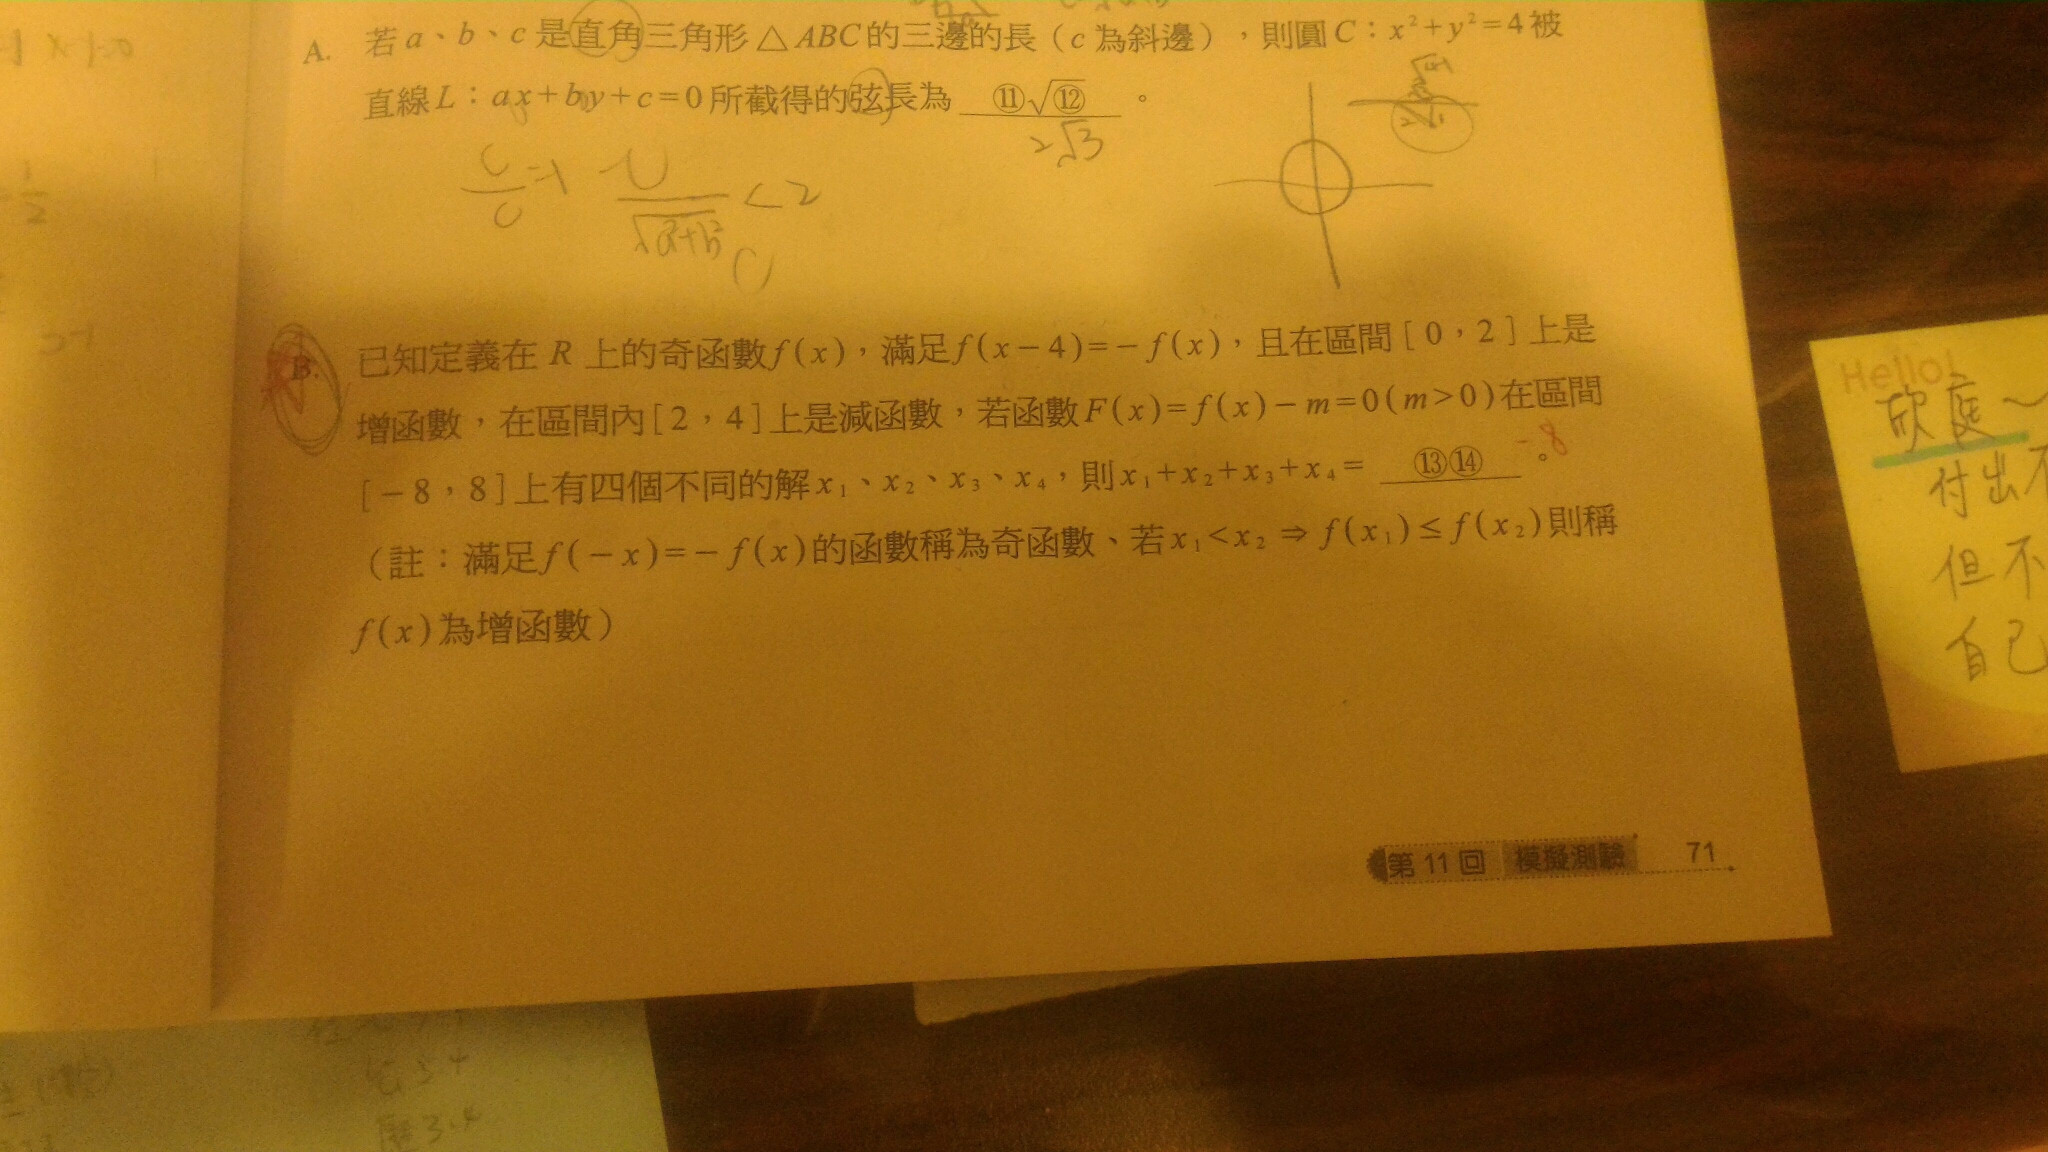 A. 若a、b、c是直角三角形△ABC的三邊的長(c為斜邊),則圓C:x²+y²=4被
直線L:ax+by+c=0所截得的弦長為 ⑪√⑫ 。
2√3
c/c=1 c/√(a²+b²) <2
B. 已知定義在 R 上的奇函數f(x),滿足f(x-4)=-f(x),且在區間[0,2]上是
增函數,在區間內[2,4]上是減函數,若函數F(x)=f(x)-m=0(m>0)在區間
[-8,8]上有四個不同的解x₁、x₂、x₃、x₄,則x₁+x₂+x₃+x₄= ⑬⑭ 。
-8
(註:滿足f(-x)=-f(x)的函數稱為奇函數、若x₁<x₂⇒f(x₁)≤f(x₂)則稱
f(x)為增函數)
第 11 回 模擬測驗 71
Hello!
欣庭~
付出不
但不
自己